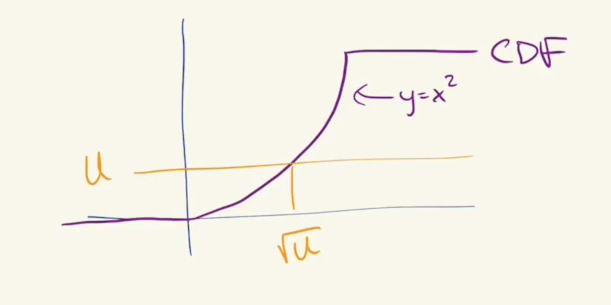 CDF
y=x²
U
√U